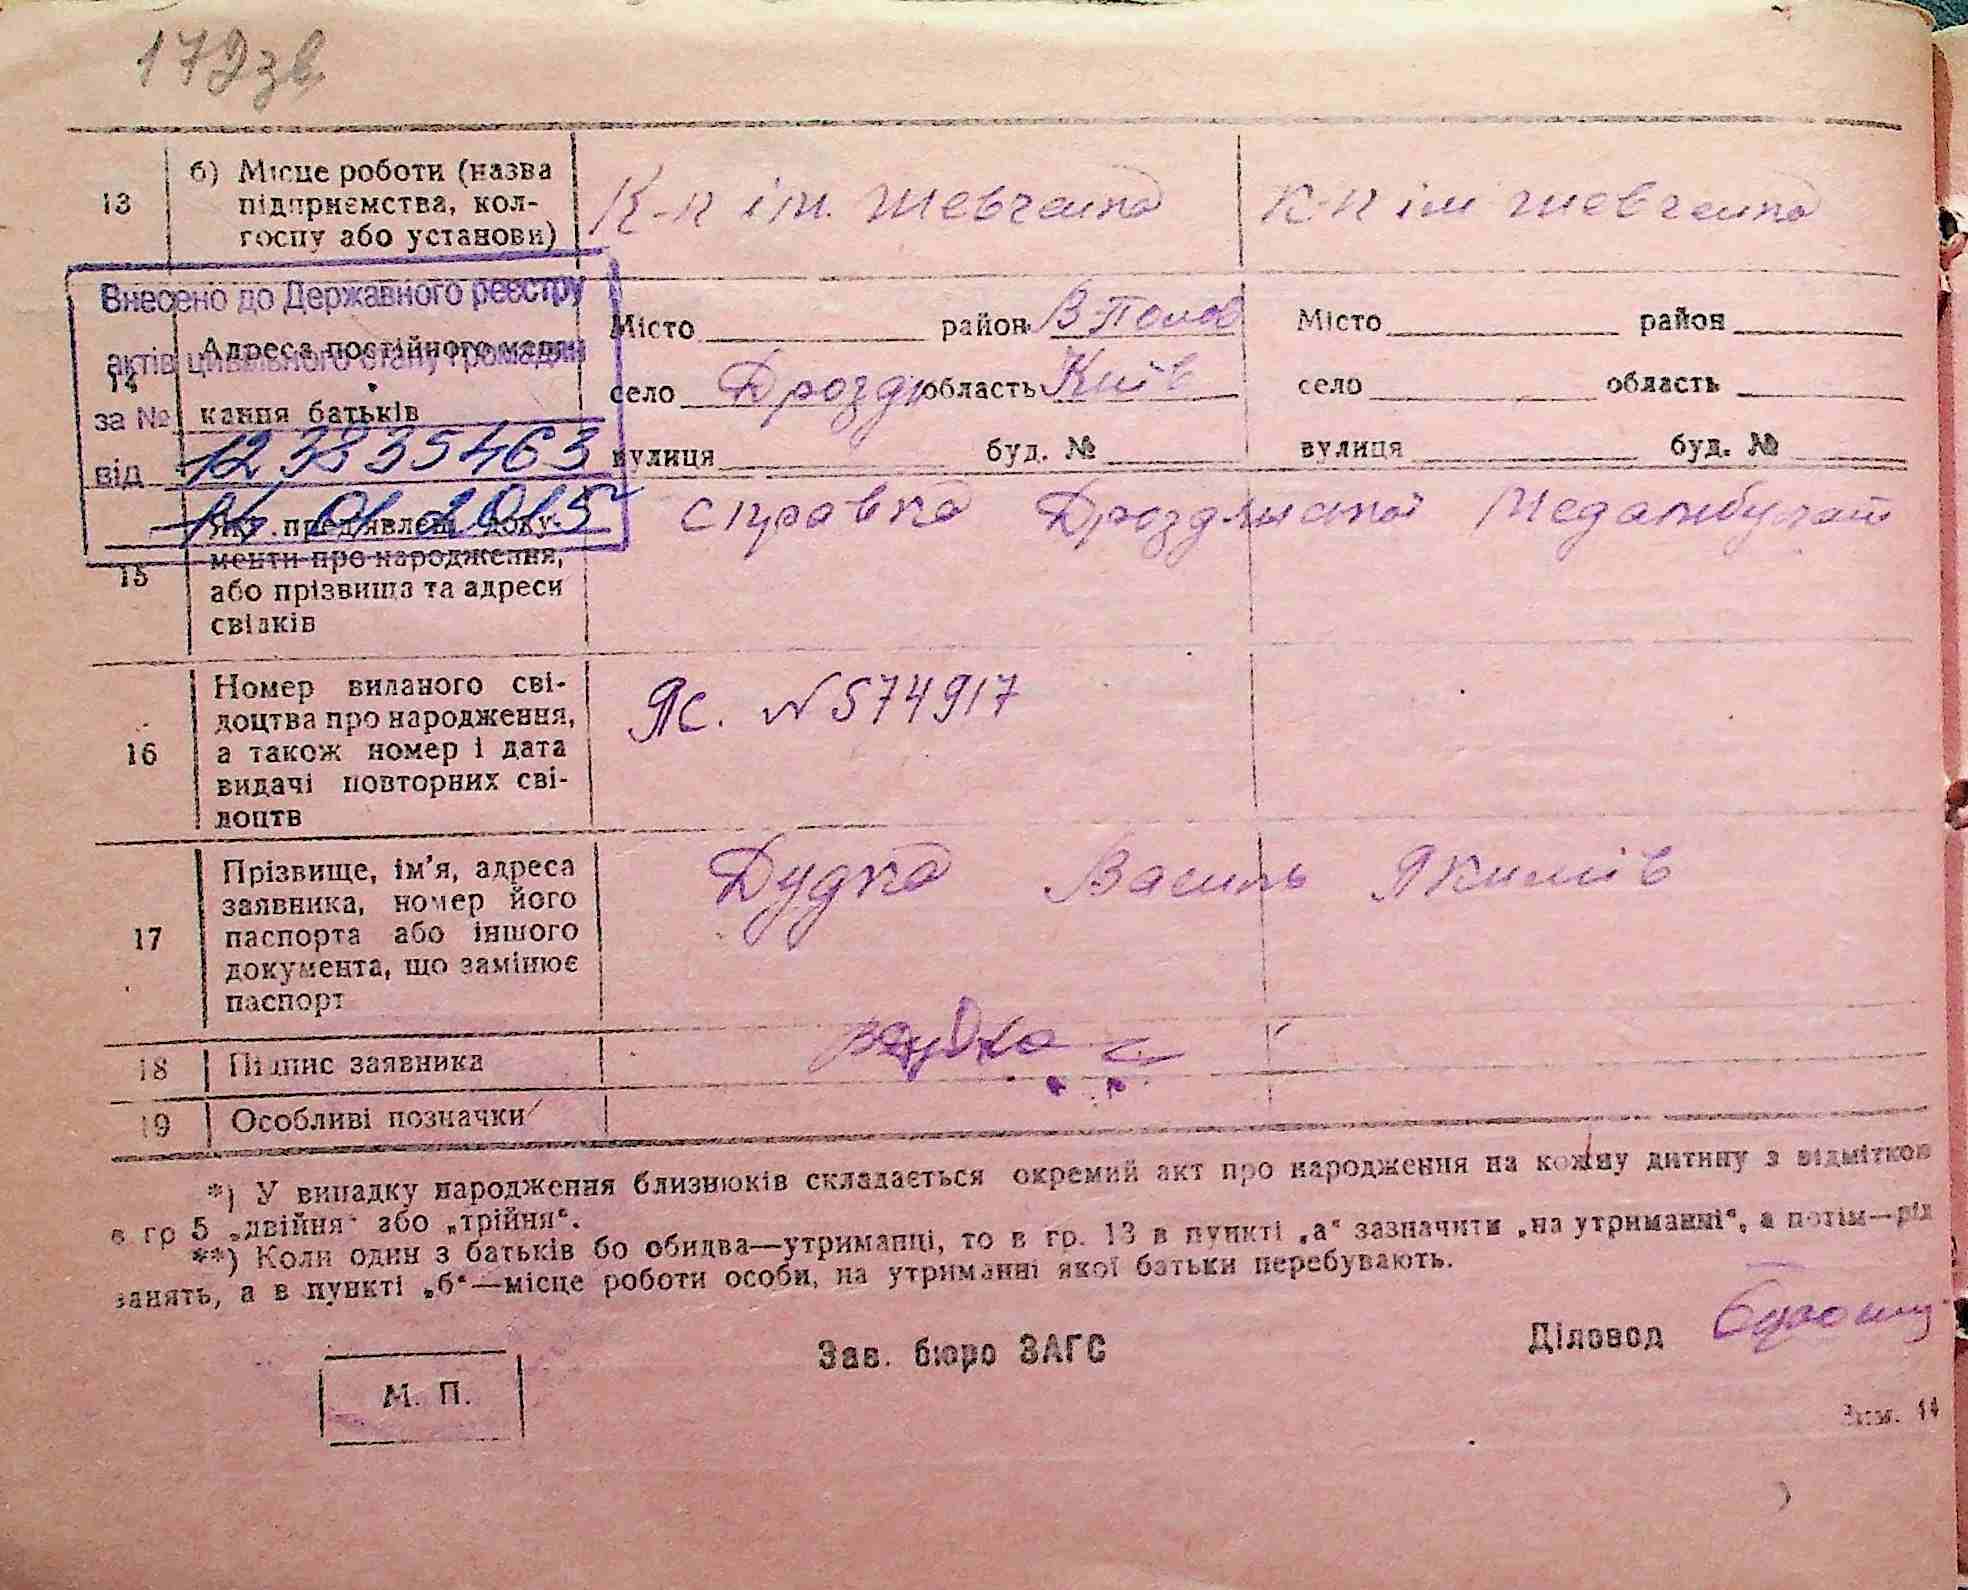 172зв
13
б) Місце роботи (назва
підприємства, кол-
госпу або установи)
К-п ім. Шевченка
К-п ім Шевченка
Внесено до Державного реєстру
актів цивільного стану громадян
за №
12 3835463
від
14 01 2015
14
Адреса постійного меш-
кання батьків
Місто район В-Полов
село Дрозди область Київ
вулиця буд. №
Місто район
село область
вулиця буд. №
15
Які пред'явлені доку-
менти про народження,
або прізвища та адреси
свідків
Справка Дроздянської Медамбулат
16
Номер виданого сві-
доцтва про народження,
а також номер і дата
видачі повторних сві-
доцтв
ЯС. № 574917
17
Прізвище, ім'я, адреса
заявника, номер його
паспорта або іншого
документа, що замінює
паспорт
Дудка Василь Якимів
18
Підпис заявника
Дудка
19
Особливі позначки
*) У випадку народження близнюків складається окремий акт про народження на кожну дитину з відміткою
в гр 5 „двійня“ або „трійня“.
**) Коли один з батьків бо обидва—утриманці, то в гр. 13 в пункті „а“ зазначити „на утриманні“, а потім—рід
занять, а в пункті „б“—місце роботи особи, на утриманні якої батьки перебувають.
М. П.
Зав. бюро ЗАГС
Діловод
Зам. 14